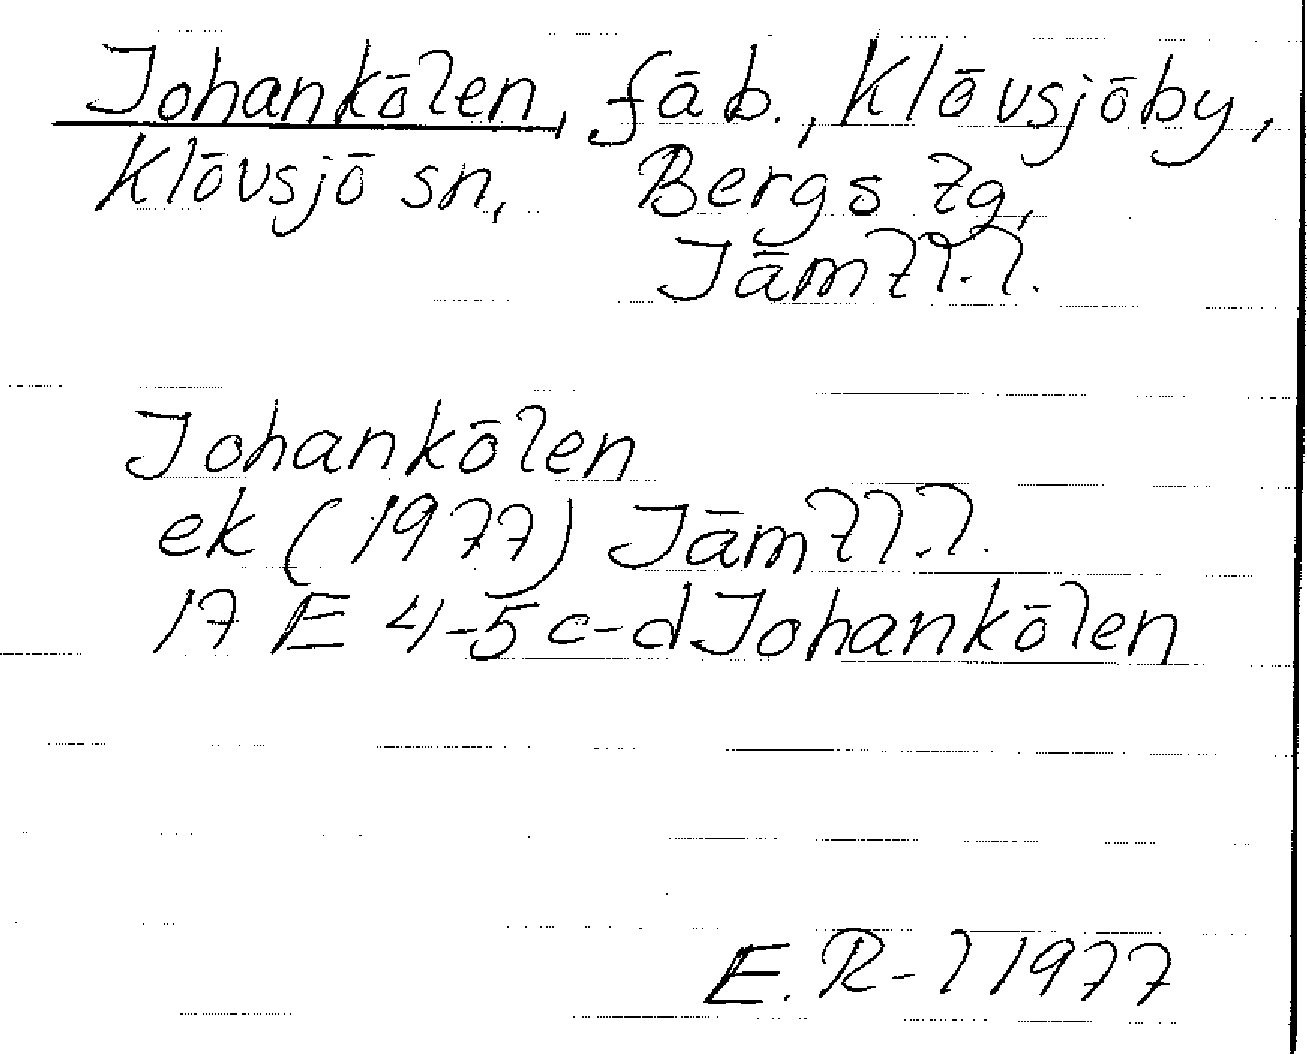 Johankölen, fäb., Klövsjöby,
Klövsjö sn, Bergs tg,
Jämtl.l.
Johankölen
ek (1977) Jämtl.l.
17 E 4-5 c-d Johankölen
E. R-l 1977